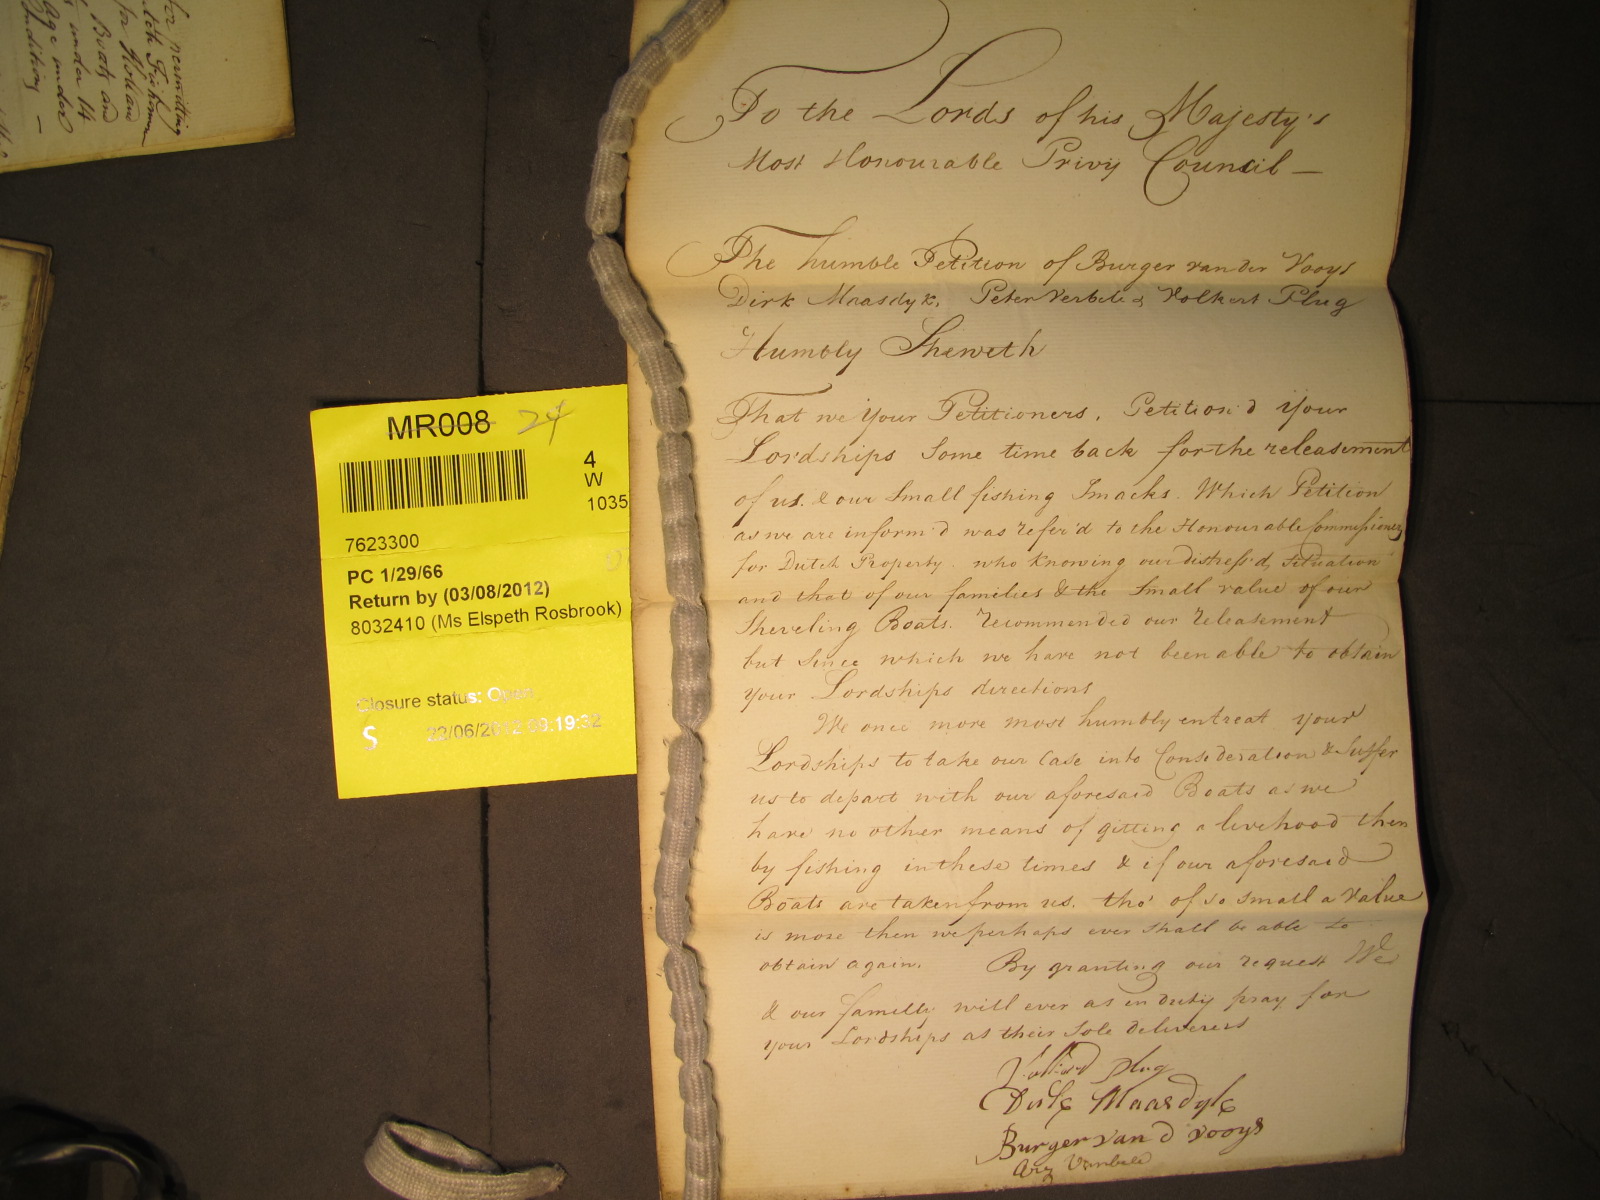 for permitting
Dutch Fishermen
for Holland
Boats and
under 14
age under
Condition —
MR008 24
4
W
1035
7623300
PC 1/29/66
Return by (03/08/2012)
8032410 (Ms Elspeth Rosbrook)
Closure status: Open
S 22/06/2012 09:19:32
To the Lords of his Majesty's
Most Honourable Privy Council —
The humble Petition of Burger van der Vooys
Dirk Maasdyk, Peter Verbele & Volkert Plug
Humbly Sheweth
That we Your Petitioners, Petition'd your
Lordships Some time back for the releasement
of us. & our Small fishing Smacks. Which Petition
as we are inform'd was refer'd to the Honourable Commissioners
for Dutch Property. who knowing our distress'd, situation
and that of our families & the Small value of our
Sheveling Boats. recommended our releasement
but Since which we have not been able to obtain
your Lordships directions
We once more most humbly entreat your
Lordships to take our Case into Consideration & Suffer
us to depart with our aforesaid Boats as we
have no other means of gitting a livehood then
by fishing in these times & if our aforesaid
Boats are taken from us. tho' of so small a value
is more then we perhaps ever shall be able to
obtain again. By granting our request We
& our familly will ever as in duty pray for
your Lordships as their Sole deliverers
Plug
Dirk Maasdyk
Burger van d vooys
Ary